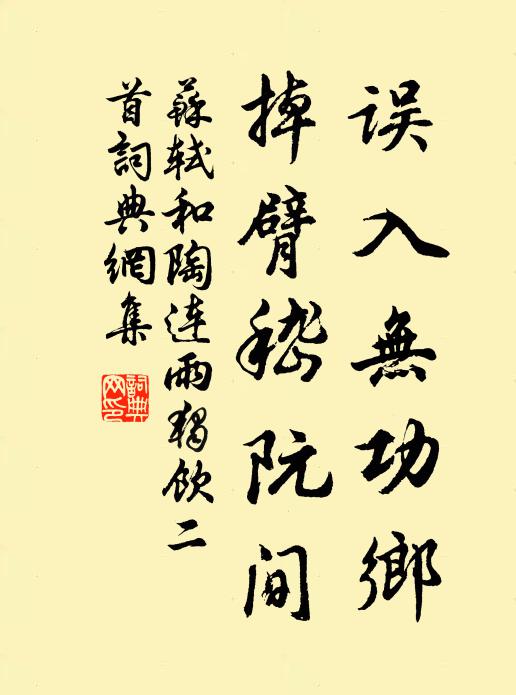 误入無功鄉
掉臂嵇阮间
蘇轼和陶连雨獨飲二
首詞典網集
詞典
网印